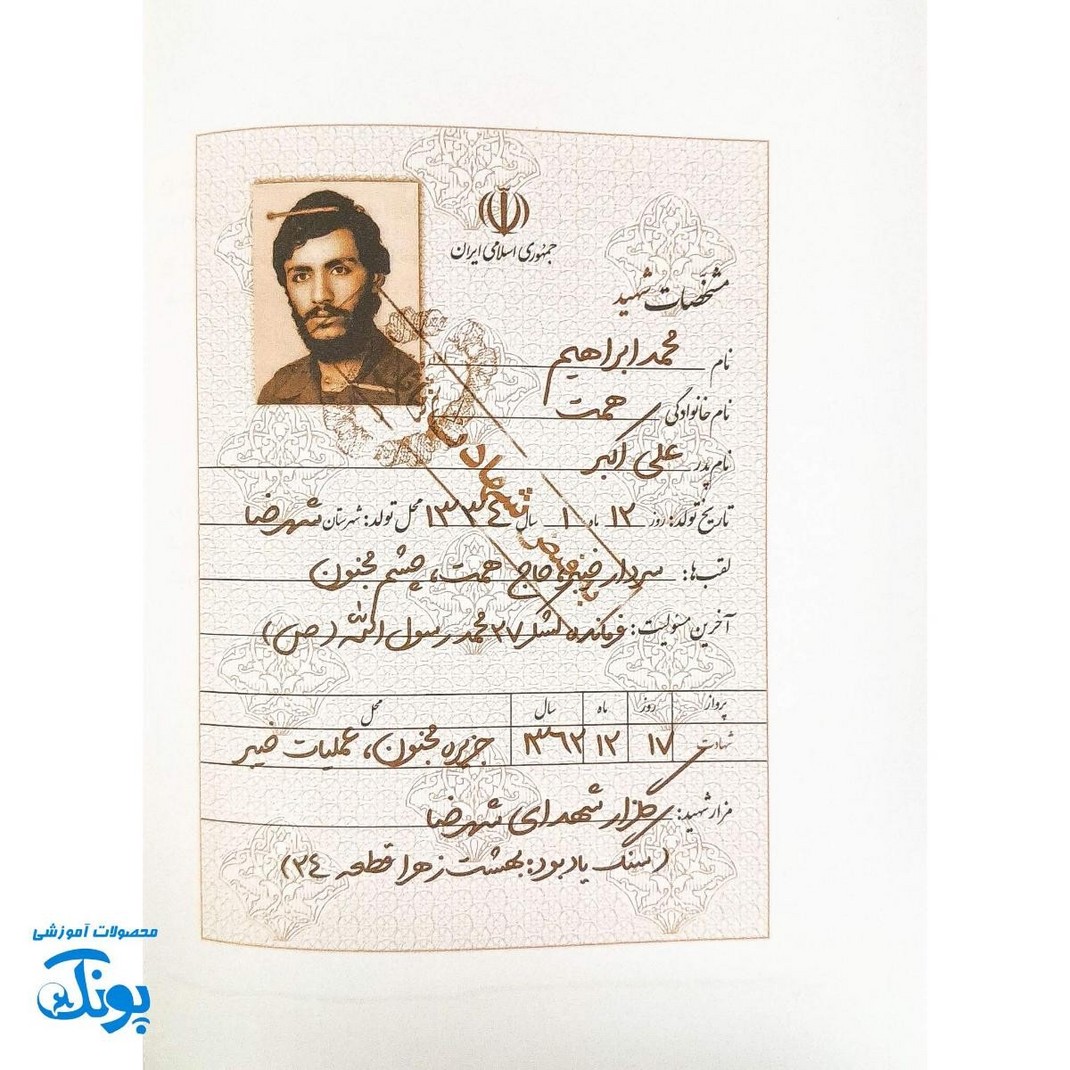 جمهوری اسلامی ایران
مشخّصات شهید
نام محمد ابراهیم
نام خانوادگی همت
نام پدر علی اکبر
تاریخ تولد: روز ۱۲ ماه ۱ سال ۱۳۳٤ محل تولد: شهرستان شهرضا
لقب‌ها: سردار خیبر، حاج همت، چشم مجنون
آخرین مسئولیت: فرمانده لشکر ۲۷ محمد رسول الله (ص)
پرواز روز ماه سال محل
شهادت ۱۷ ۱۲ ۱۳۶۲ جزیره مجنون، عملیات خیبر
مزار شهید: گلزار شهدای شهرضا
(سنگ یادبود: بهشت زهرا قطعه ۲٤)
محصولات آموزشی
پونک